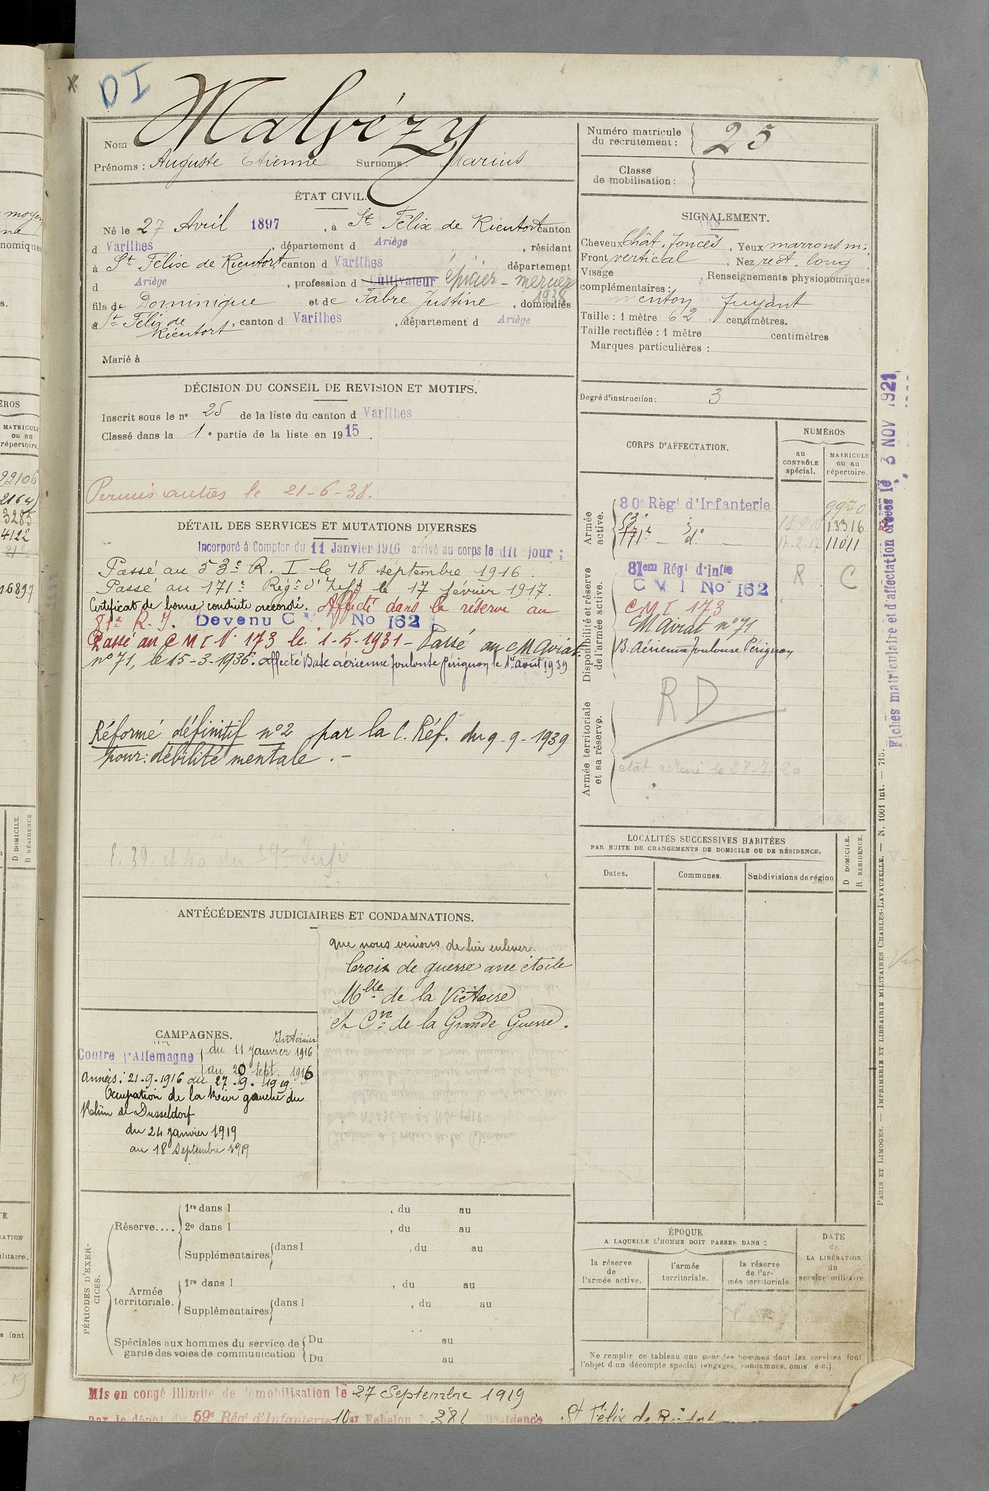 DI
Nom Malvézy
Prénoms : Auguste Etienne Surnoms Marius
Numéro matricule du recrutement : 25
Classe de mobilisation :
ÉTAT CIVIL.
Né le 27 Avril 1897, à St Félix de Rieutort canton
d Varilhes, département d Ariège, résidant
à St Félix de Rieutort canton d Varilhes département
d Ariège, profession d Cultivateur épicier - mercier 1938
fils de Dominique et de Fabre Justine, domiciliés
à St Félix de Rieutort, canton d Varilhes, département d Ariège
Marié à
SIGNALEMENT.
Cheveux Chât. foncés, Yeux marrons m.
Front vertical, Nez rect. long
Visage , Renseignements physionomiques
complémentaires :
menton fuyant
Taille : 1 mètre 62 centimètres.
Taille rectifiée : 1 mètre centimètres
Marques particulières :
Degré d'instruction : 3
DÉCISION DU CONSEIL DE REVISION ET MOTIFS.
Inscrit sous le n° 25 de la liste du canton d Varilhes
Classé dans la 1e partie de la liste en 1915.
Permis autos le 21-6-38.
DÉTAIL DES SERVICES ET MUTATIONS DIVERSES
Incorporé à Compter du 11 Janvier 1916 arrivé au corps le dit jour ;
Passé au 53e R. I le 18 septembre 1916.
Passé au 171e Régt d'Inf. le 17 février 1917.
Certificat de bonne conduite accordé. Affecté dans la réserve au
81e R. I. Devenu C No 162
Passé au C M I N° 173 le 1-5-1931 - Passé au C M Aviat.
n° 71, le 15-3-1936. Affecté Base aérienne Toulouse Périgon le 1er août 1939
Réformé définitif n°2 par la C. Réf. du 9-9-1939
pour : débilité mentale. -
CORPS D'AFFECTATION.
NUMÉROS
au CONTRÔLE spécial.
MATRICULE ou au répertoire.
Armée active.
80 Régt d'Infanterie 9970
53e d° 13316
171e - d° 11011
Disponibilité et réserve de l'armée active.
81em Régt d'Inftie R C
C V I No 162
C M I 173
C M Aviat n°71
B. Aérienne Toulouse Périgon
Armée territoriale et sa réserve.
RD
LOCALITÉS SUCCESSIVES HABITÉES
PAR SUITE DE CHANGEMENTS DE DOMICILE OU DE RÉSIDENCE.
Dates. Communes. Subdivisions de région
D DOMICILE.
R RÉSIDENCE.
ANTÉCÉDENTS JUDICIAIRES ET CONDAMNATIONS.
que nous venions de lui enlever.
Croix de guerre avec étoile
Mlle de la Victoire
et Cve de la Grande Guerre.
CAMPAGNES.
Intérieur
Contre l'Allemagne du 11 janvier 1916
au 20 sept. 1916
Armées : 21-9-1916 au 27-9-1919
Occupation de la Rive gauche du
Rhin de Dusseldorf
du 24 janvier 1919
au 18 Septembre 1919
PÉRIODES D'EXERCICES.
Réserve....
1re dans l , du au
2e dans l , du au
Supplémentaires dans l , du au
Armée territoriale.
1re dans l , du au
Supplémentaires dans l , du au
Spéciales aux hommes du service de garde des voies de communication
Du au
Du au
ÉPOQUE
A LAQUELLE L'HOMME DOIT PASSER DANS :
la réserve de l'armée active.
l'armée territoriale.
la réserve de l'armée territoriale.
DATE de LA LIBÉRATION du service militaire.
Ne remplir ce tableau que pour les hommes dont les services font
l'objet d'un décompte spécial (engagés, condamnés, omis, etc.)
Mis en congé illimité de démobilisation le 27 Septembre 1919
par le dépôt du 59e Régt d'Infanterie 10e Echelon 381 Résidence St Félix de Rieutort
Fiches matriculaire et d'affectation créées le 3 NOV 1921
PARIS ET LIMOGES. — IMPRIMERIE ET LIBRAIRIE MILITAIRES CHARLES-LAVAUZELLE. — N. 1001 int. — 715.